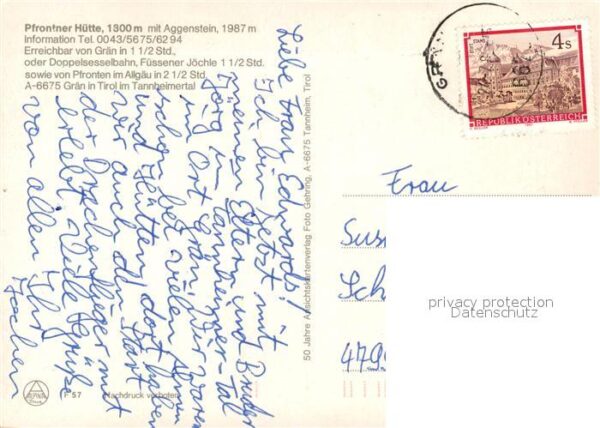 Pfrontner Hütte, 1300 m mit Aggenstein, 1987 m
Information Tel. 0043/5675/6294
Erreichbar von Grän in 1 1/2 Std.,
oder Doppelsesselbahn, Füssener Jöchle 1 1/2 Std.
sowie von Pfronten im Allgäu in 2 1/2 Std.
A-6675 Grän in Tirol im Tannheimertal
Liebe Frau Edwards!
Ich bin jetzt mit
meinen Eltern und Bruder
Jörg im Tannheimer-Tal
im Ort Grän. Wir waren
schon bei vielen Almen
und Hütten, dort haben
wir auch den Start
der Drachenflieger mit
erlebt. Viele Grüße
von allen Ihr
Jochen
50 Jahre Ansichtskartenverlag Foto Gehring, A-6675 Tannheim, Tirol
STIFT STAMS
4 S
REPUBLIK ÖSTERREICH
Frau
Sus
Sch
479
privacy protection
Datenschutz
ALPINA
F 57
Nachdruck verboten